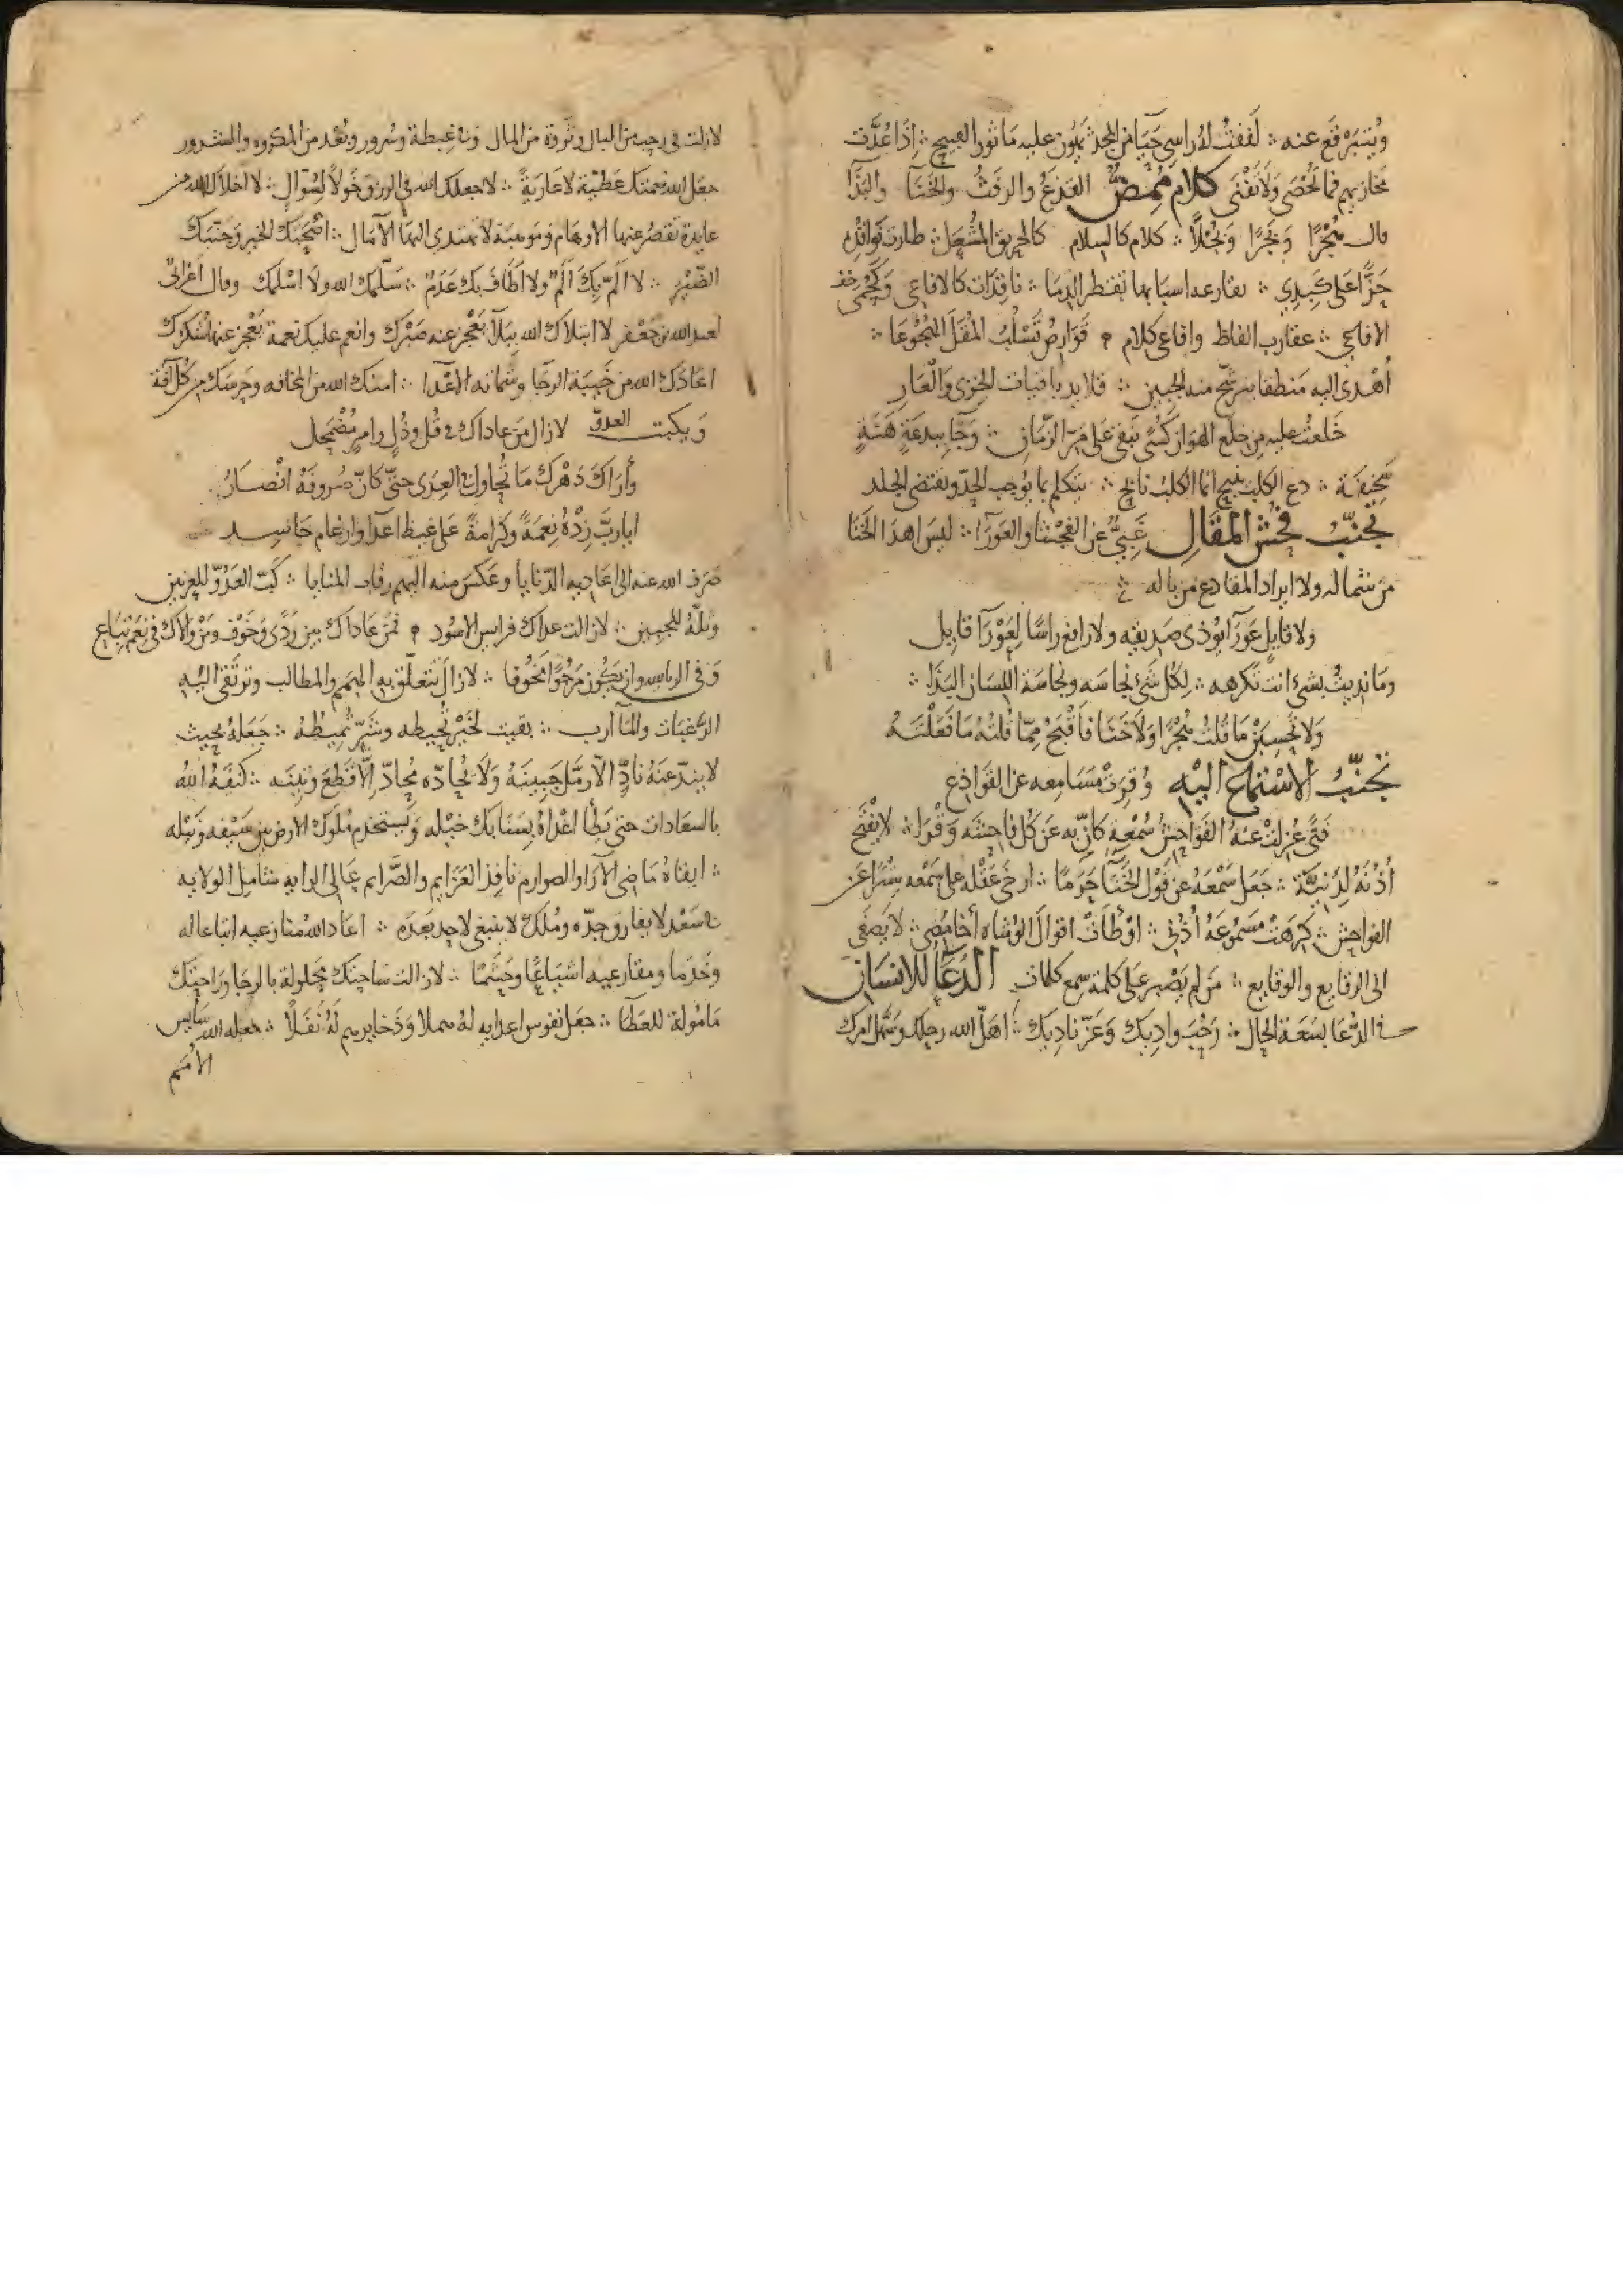 ويتبرقع عنه ∴ لففت له راسى حيا من المجد يهون عليه ماثور القبيح ∴ اذا عُدَّت
مخازيهم فما تُحْصَى وَلَا تَفْنَى كلام مُمِضّ القذع والرفث والخَنَا والبَذَا
قال هُجْرًا وَبُجْرًا ∴ كلام كالسلام كالحريق المشعل ∴ طارت نوافذه
حَزًّا عَلى كَبِدِي ∴ تقطر الدما ∴ نافذات كالافاعى
الافاعى ∴ عقارب الفاظ وافاعى كلام قَوَارِصُ تَسْلُبُ المُقَلَ الهُجُوعَا ∴
أهْدى اليه منطقا يترشح منه الجبين ∴ قلايد باقيات الخِزى وَالعَارِ
خَلعتُ عليه من خلع الهوان كُسًى تبقى على مَرّ الزمان ∴
سَخِيفَة ∴ دع الكلب ينبح انما الكلب نابح ∴ يتكلم بما يُوجب الحِدّ ويقتضى الجلد
تجنّبُ فحش المقالِ غَبِىٌّ عن الفحشا والعَورآ ∴ ليسَ اهدا الخنا
من شماله ولا ايراد المقادع من باله
ولا قايل عَورَآ يوذى صديقه ولا رافع راسًا لِعَوْرَآ قايل
ومَا نديتُ بشئ انت تكرهه ∴ لِكُل شئ نجاسه ونجاسة اللسان البَذَا ∴
وَلا تحسِبَنْ مَا قلتُ هُجْرًا وَلا خَنَا فَاَقْبَحُ ممّا قُلتُهُ مَا فَعَلْتَهُ
تجنّبُ الاسْتماع اليْهِ وُقِرَتْ مَسَامِعه عن القَوَاذع
فَتًى عُزِلتْ عَنهُ الفَواحِشُ سُمْعِهِ كَانّ به عَن كُل فاحِشه وَقْرَا ∴ لا يفتح
أُذْنَهُ لِدَنيَّة ∴ جَعَل سَمْعَهُ عن قَوْل الخَنَآ حَرَمًا ∴ ارخى عَقْله على سَمْعه سِتْرًا عَن
الفواحِش ∴ كرهَتْ مَسمُوعَهُ أُذنى ∴ اَوْطأتُ اقوالَ الوُشاه أخامِصى ∴ لا يَصْغَى
الى الرقايع والوقايع ∴ مَن لم يَصْبر عَلى كلمة سمع كلمات الدّعَآ للانسَان
فى الدُّعَا بسَعَة الحال ∴ رَحُبَ وادِيك وَعَزّ نادِيك ∴ اهَلّ الله رحلك وسَهّل امرك
لازلت فى رحب من البال وثروة من المال وفى غبطة وسُرور وبُعْد من المكروه والمشرور
جعَل الله نعمتك عَطيّة لا عَاريَةً ∴ لا جعلك الله فى الرزق خَولًا لِسُؤال ∴ لا اخلاك الله من
عايدة تقصُر عنها الاوهام وموهبة لا تهتدى اليهَا الآمَال ∴ اصْحَبَكَ الخير وَجَنّبَكَ
الضَّيْر ∴ لا اَلمّ بِكَ اَلَمٌ ولا اَطَافَ بك عَدَمٌ ∴ سَلّمك الله ولا اسْلمك وقال اعْرابىٌّ
لعبد الله بن جَعْفر لا ابتلاك الله ببَلآ يَعْجِز عنه صَبْرك وانعم عليك نعمة يَعْجز عنها شُكرك
اعَاذَك الله من خَيبَة الرجَا وشماتة الاعْدا ∴ امنك الله من المخافه وحَرسَك من كُل آفة
وَيكبت العدوّ لا زال مَن عاداك فى قُل وذُل وامر مُضْمَحِل
وأراك دَهْرك مَا تُحاول فى العِدَى حتى كانّ صُروفَهُ انْصَارُ
ايا ربّ زدْهُ نِعمَةً وكَرامةً عَلى غيظ اعدا وارغام حَاسِد
صَرَف الله عنه الى اعَاديه الدّنايا وعَكسَ منه اليهم رقاب المنايا ∴ كَبّ العَدُوّ لليدين
وَتَلَّهُ للجبين ∴ لازالت عداك فرايس الاسُود فَمَن عَاداك بين رَدًى وخَوْف ومَن والاك فى نعَم تِبَاع
وَفى الرياسه وان يَكُون مَرْجُوًّا مَخُوفا ∴ لازال تتعلّق به الهِمَم والمطالب وترتقى اليه
الرَّغَبَات والمَآرب ∴ بقيت لخَيْر تُحيطه وشَرّ تُمِيطُهُ ∴ جَعَلهُ بحيث
لا يندّ عنهُ نادٌّ الّا رَمَّل جَبِينَهُ وَلا يُحادّه مُحادّ اِلّا قَطعَ وَتِينَه ∴ كنَفَهُ اللهُ
بالسعَادات حتى يَطأ اعْدَاهُ بِسَنَابك خيْله وَيَستخدم مُلوك الارض بين سَيْفه وَنَيْله
∴ ابقاهُ مَاضى الآرا والصوارم نافِذ العَزَايم والصَّرَايم عَالى الرايه شامل الولايه
فى سَعْد لا يفارق جدّه ومُلك لا ينبغى لاحد بَعدَه ∴ اعَاد الله مُنازعيه اتباعا له
وخَدَما ومقارعيه اشيَاعًا وحَشَمًا ∴ لازالت سَاحتك محلولة بالرجَا ورَاحتك
مَامُولة للعَطَا ∴ جعَل نفوس اعدايه لهُ وَذَخايرهم لهُ نَفَلًا ∴ جعله الله سَايس
الأُمَم